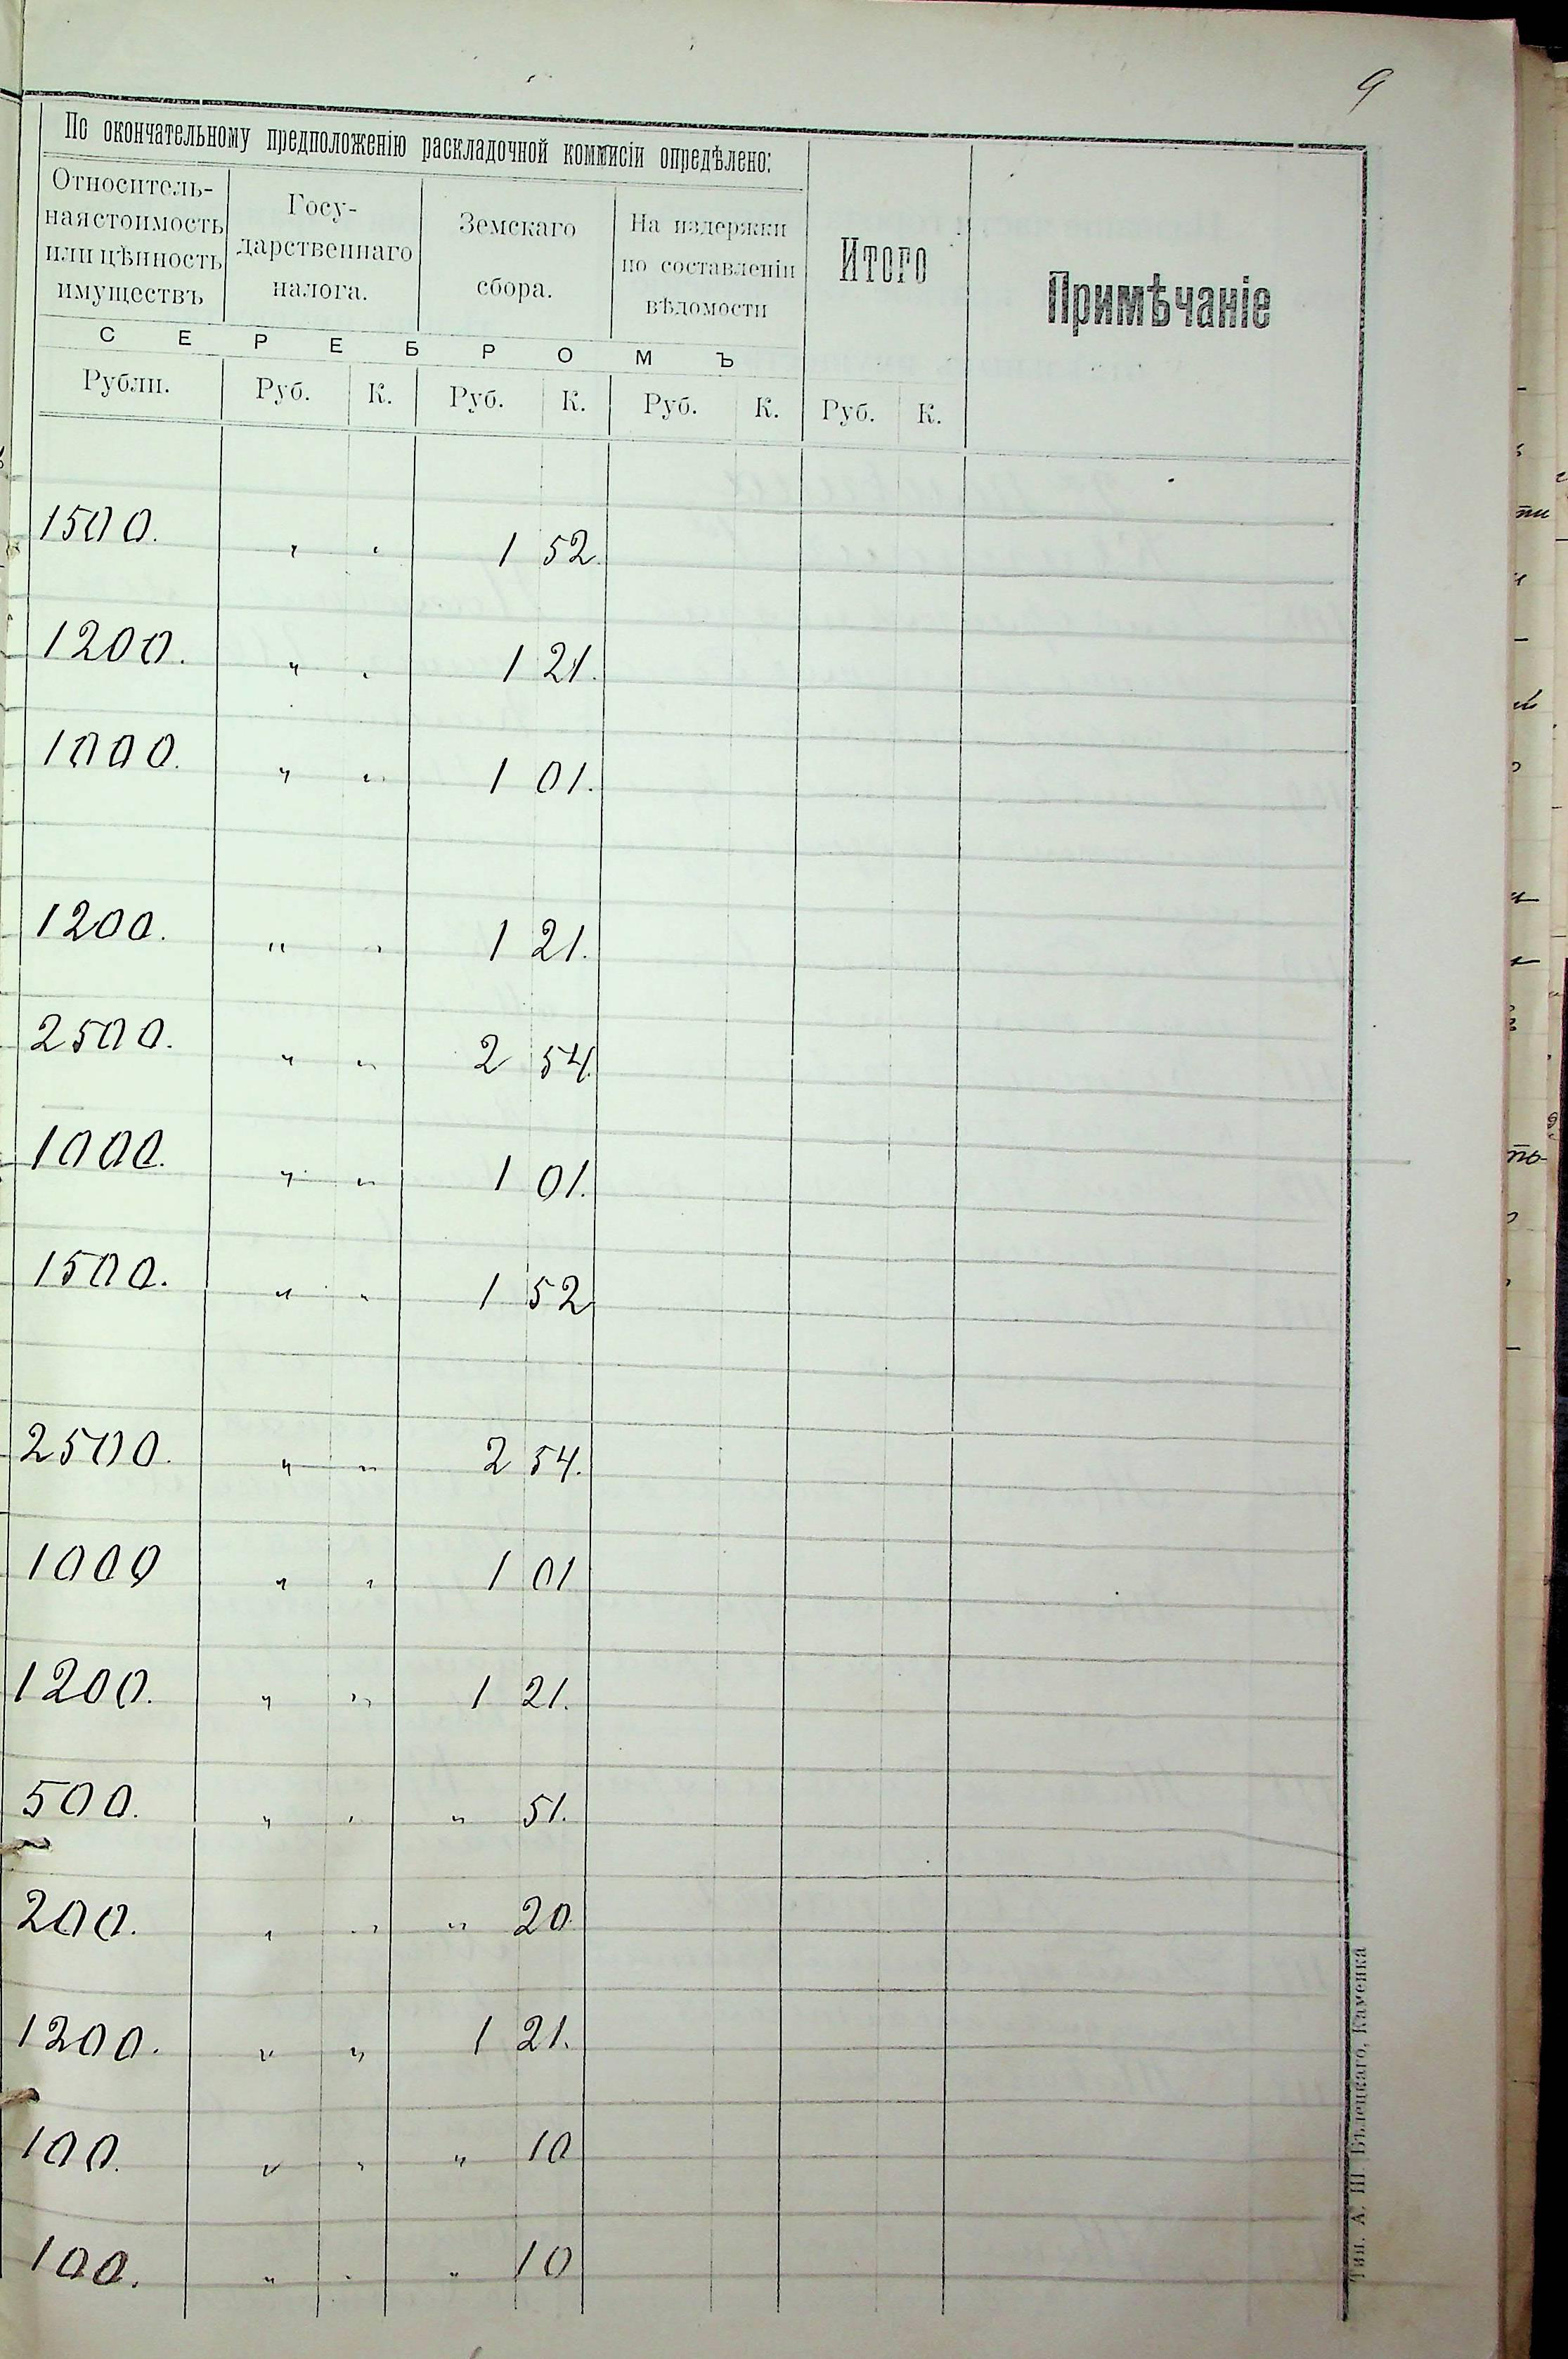 9
По окончательному предположенію раскладочной коммисіи опредѣлено:
Относитель-
ная стоимость
или цѣнность
имуществъ
Госу-
дарственнаго
налога.
Земскаго
сбора.
На издержки
по составленіи
вѣдомости
Итого
Примѣчаніе
С Е Р Е Б Р О М Ъ
Рубли. Руб. К. Руб. К. Руб. К. Руб. К.
1500. " " 1 52.
1200. " " 1 21.
1000. " " 1 01.
1200. " " 1 21.
2500. " " 2 54.
1000. " " 1 01.
1500. " " 1 52
2500. " " 2 54.
1000 " " 1 01
1200. " " 1 21.
500. " " " 51.
200. " " " 20.
1200. " " 1 21.
100. " " " 10
100. " " " 10
Тип. А. Ш. Бѣлецкаго, Каменка